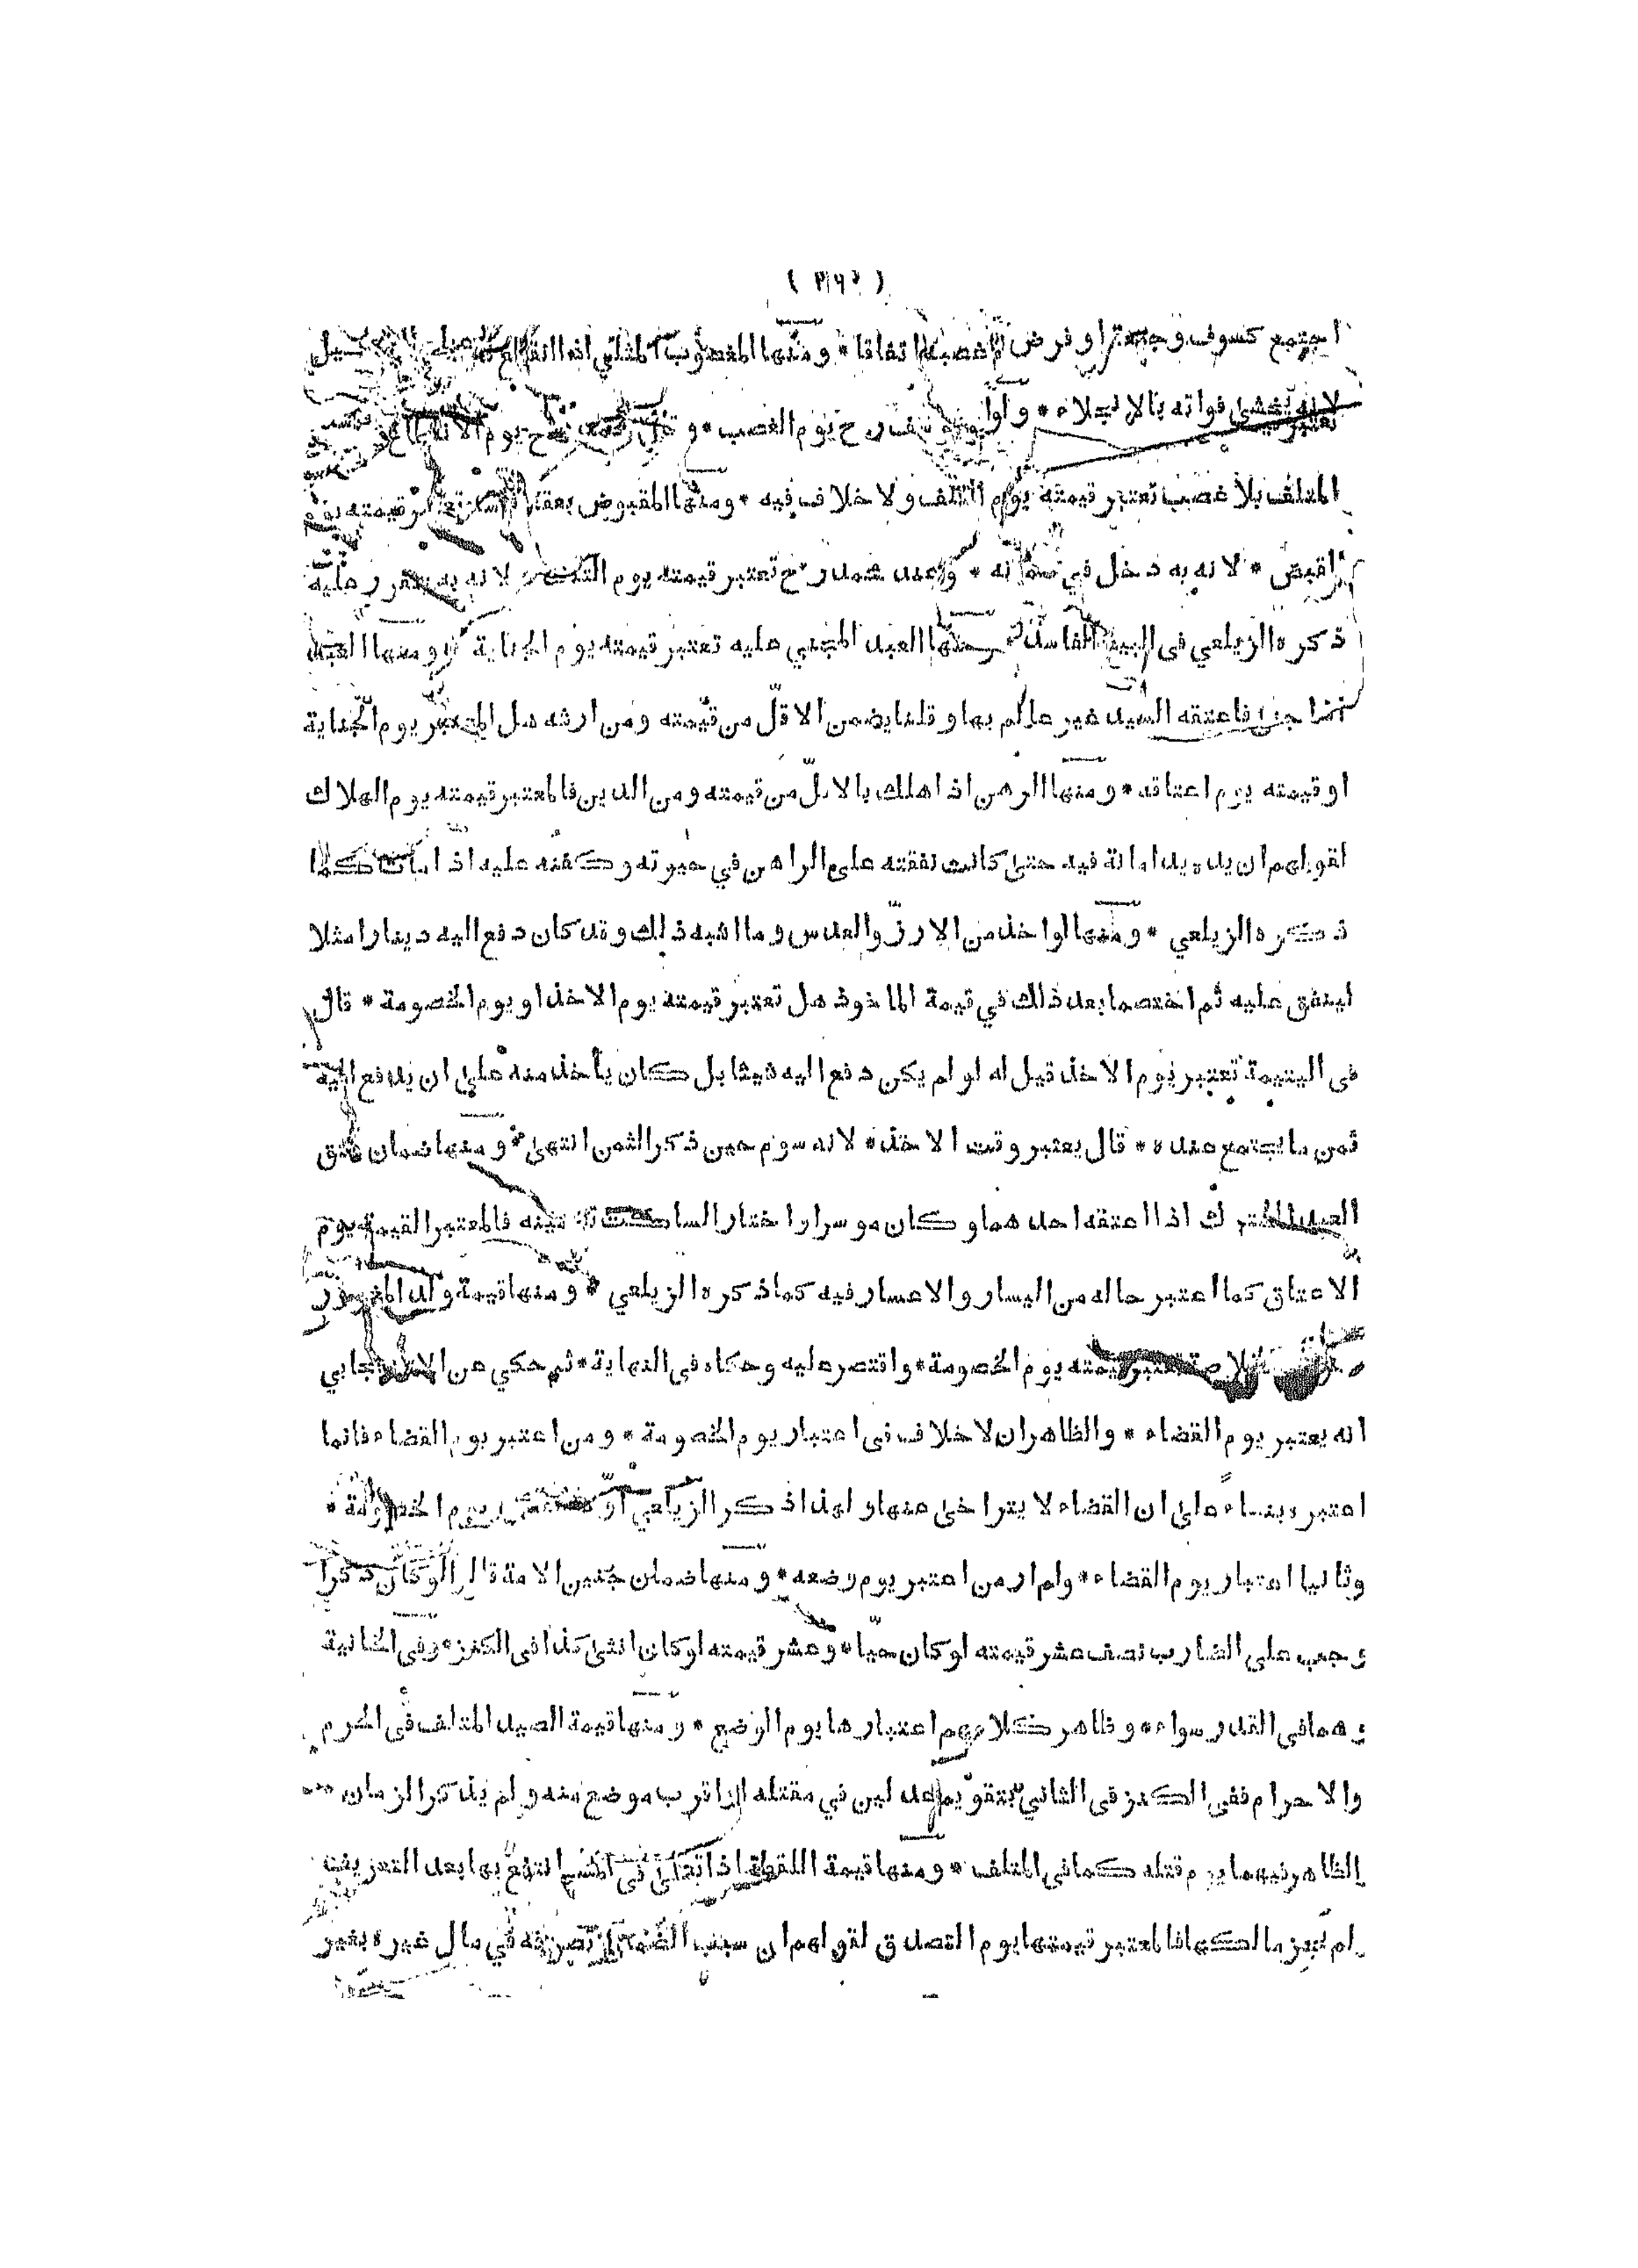 اجتمع كسوف وجمعة او فرض اتفاقا * ومنها المغصوب المثلي اذا انقطع
لانه يخشى فواته بالانجلاء * يوم الغصب * و يوم
المتلف بلا غصب تعتبر قيمته يوم التلف ولا خلاف فيه * ومنها المقبوض بعقد قيمته يوم
القبض * لانه به دخل في ضمانه * وعند محمد رح تعتبر قيمته يوم التلف لانه به يتقرر عليه
ذكره الزيلعي فى البيع الفاسد * ومنها العبد المجني عليه تعتبر قيمته يوم الجناية * ومنها العبد
اذا جنى فاعتقه السيد غير عالم بها وقلنا يضمن الاقلّ من قيمته ومن ارشه هل المعتبر يوم الجناية
او قيمته يوم اعتاقه * ومنها الرهن اذا هلك بالاقلّ من قيمته ومن الدين فالمعتبر قيمته يوم الهلاك
لقولهم ان يده يد امانة فيه حتى كانت نفقته على الراهن في حيوته وكفنه عليه اذا مات كما
ذكره الزيلعي * ومنها لو اخذ من الارزّ والعدس وما اشبه ذلك وقد كان دفع اليه دينارا مثلا
لينفق عليه ثم اختصما بعد ذلك في قيمة الماخوذ هل تعتبر قيمته يوم الاخذ او يوم الخصومة * قال
فى اليتيمة تعتبر يوم الاخذ قيل له لو لم يكن دفع اليه شيئا بل كان يأخذ منه على ان يدفع اليه
ثمن ما يجتمع عنده * قال يعتبر وقت الاخذ * لانه سوم حين ذكر الثمن انتهى * ومنها ضمان عتق
العبد المشترك اذا اعتقه احدهما وكان موسرا واختار الساكت تضمينه فالمعتبر القيمة يوم
الاعتاق كما اعتبر حاله من اليسار والاعسار فيه كما ذكره الزيلعي * ومنها قيمة ولد المغرور
تعتبر قيمته يوم الخصومة * واقتصر عليه وحكاه فى النهاية * ثم حكي عن الاسبيجابي
انه يعتبر يوم القضاء * والظاهر ان لا خلاف فى اعتبار يوم الخصومة * ومن اعتبر يوم القضاء فانما
اعتبره بناءً على ان القضاء لا يتراخى عنها ولهذا ذكر الزيلعي اوّلا يوم الخصومة *
وثانيا اعتبار يوم القضاء * ولم ار من اعتبر يوم وضعه * ومنها ضمان جنين الامة قالوا لو كان ذكرا
وجب على الضارب نصف عشر قيمته لو كان حيّا * وعشر قيمته لو كان انثى كذا فى الكنز * وفى الخانية
وهما فى القدر سواء * وظاهر كلامهم اعتبارها يوم الوضع * ومنها قيمة الصيد المتلف فى الحرم
والاحرام ففى الكنز فى الثاني بتقويم عدلين في مقتله او اقرب موضع منه ولم يذكر الزمان
والظاهر فيهما يوم قتله كما في المتلف * ومنها قيمة اللقطة اذا تصدق او انتفع بها بعد التعريف
ولم يجز مالكها فالمعتبر قيمتها يوم التصدق لقولهم ان سبب الضمان تصرفه في مال غيره بغير